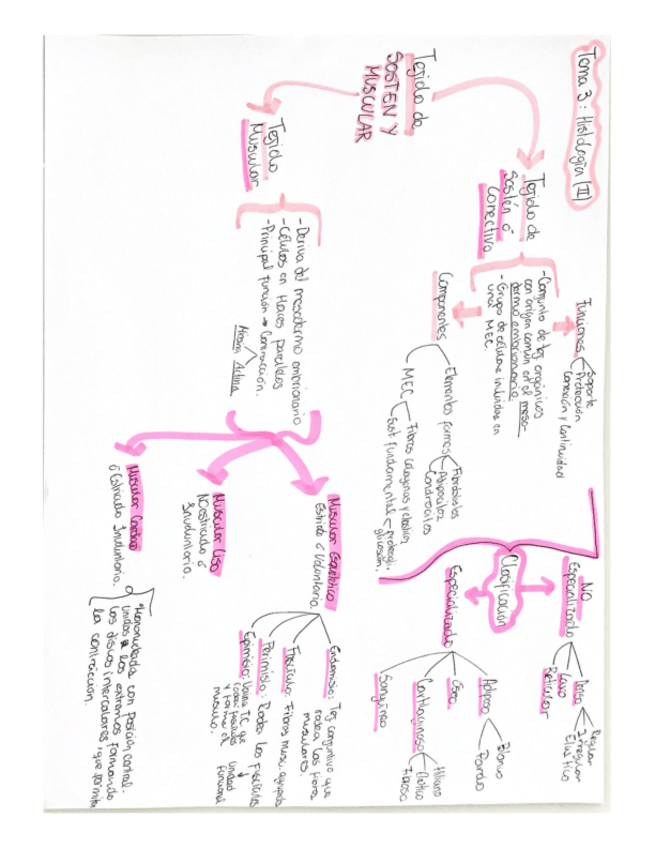 Tema 3: Histología (II)
Tejido de
SOSTEN Y
MUSCULAR
Tejido de
Sostén ó
Conectivo
-Conjunto de tej orgánicos
con origen común en el meso-
dermo embrionario
-Grupo de células incluidas en
una MEC.
Funciones
Soporte
Protección
Conexión y Continuidad
Componentes
Elementos formes
Fibroblastos
Adipocitos
Condrocitos
MEC
Fibras colágenas y
Sust. fundamental
Clasificación
NO
Especializado
Denso
Regular
Irregular
Elástico
Laxo
Reticular
Especializado
Adiposo
Blanco
Pardo
Óseo
Cartilaginoso
Hialino
Elástico
Fibroso
Sanguíneo
Tejido
Muscular
-Deriva del mesodermo embrionario
-Células en Haces paralelos
-Principal función → Contracción.
Miosina Actina
Muscular Esquelético
Estriado ó Voluntario.
Endomisio: Tej conjuntivo que
rodea las fibras
musculares.
Fascículo: Fibras musc. agrupadas
Perimisio: Rodea los fascículos
Epimisio: Vaina T.C que
fascículos unidad
y forma el funcional
músculo.
Muscular Liso
NO estriado ó
Involuntario.
Muscular Cardiaco
ó Estriado Involuntario.
Mononucleadas con posición central.
Unidas a los extremos formando
los discos intercalares, que permiten
la contracción.